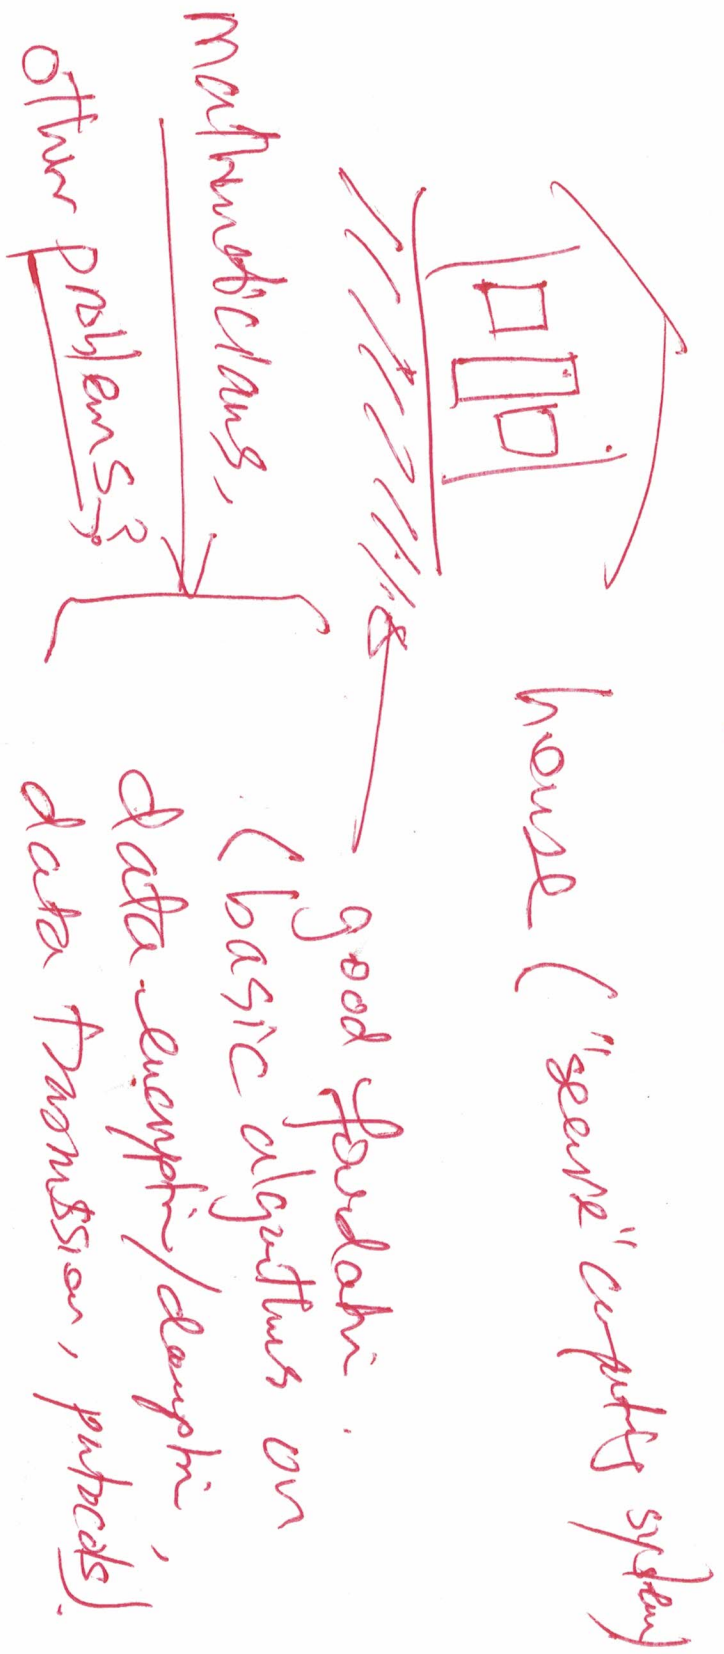 house ("secure" computing system)
good foundation.
(basic algorithms on
data encryption/decryption,
data transmission, protocols)!
mathematicians,
other problems?